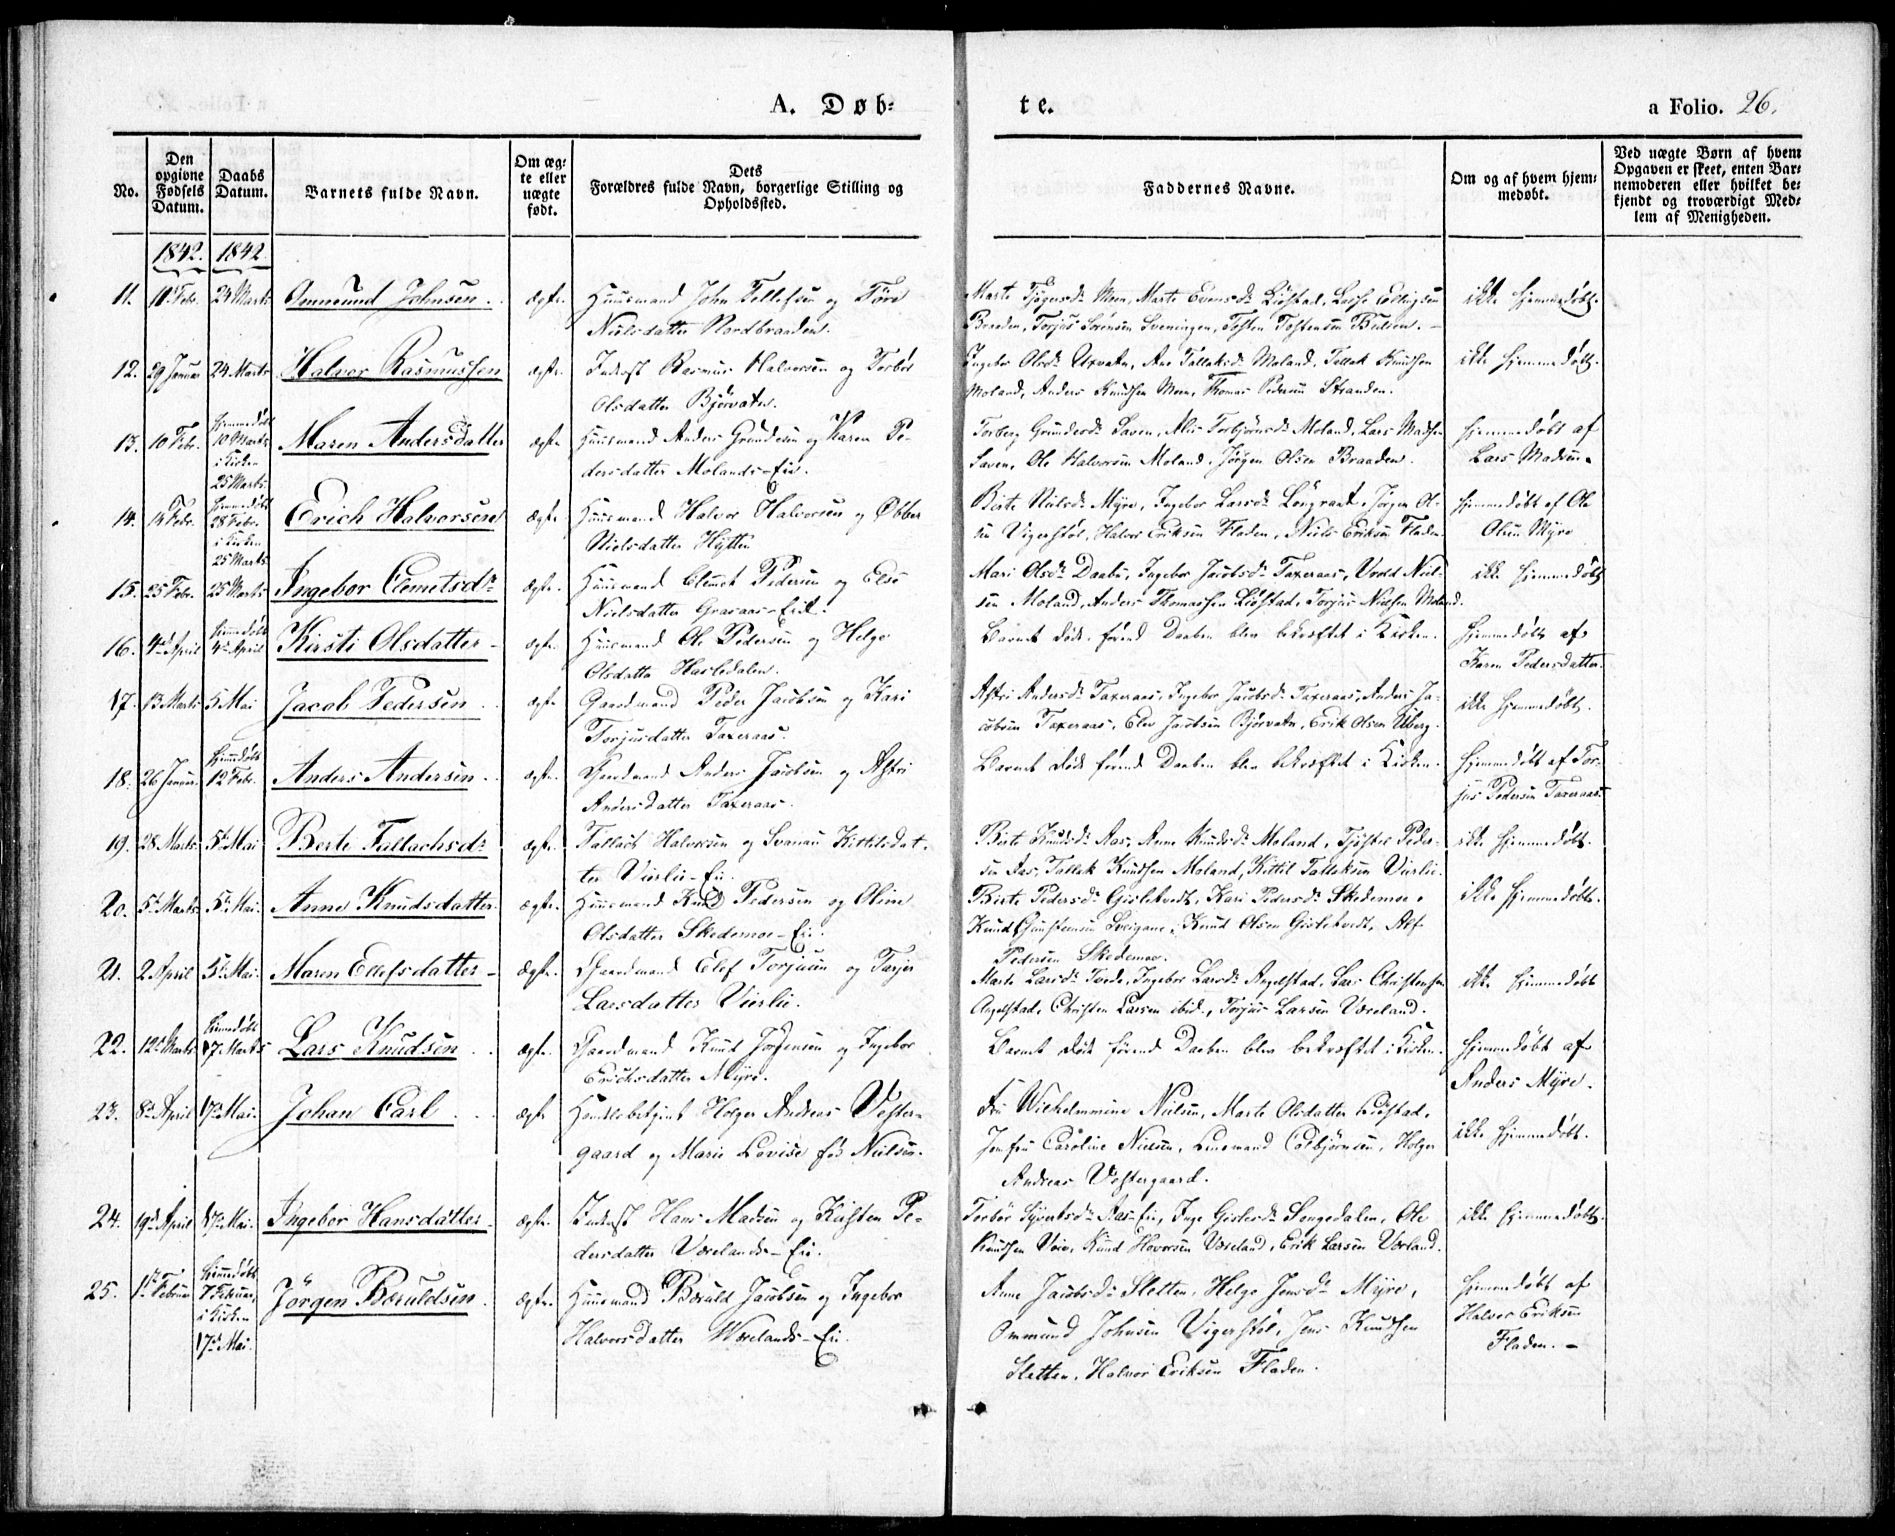 A. Døb-
te.
a Folio. 26.
No.
Den opgivne Fødsels Datum.
Daabs Datum.
Barnets fulde Navn.
Om ægte eller uægte født.
Dets Forældres fulde Navn, borgerlige Stilling og Opholdssted.
Faddernes Navne.
Om og af hvem hjemmedøbt.
Ved uægte Børn af hvem Opgaven er skeet, enten Barnemoderen eller hvilket bekjendt og troværdigt Medlem af Menigheden.
1842. 1842.
11. 10 Febr. 24 Marts Ommund Johnsen. ægte. Huusmand John Tellefsen og Tøre
Nielsdatter Nordbraaden.
Marte Evensd. Liøstad,
Braaden, Torjus Sørensen Sveningen, Tosten Tostensen
ikke hjemmedøbt.
12. 29 Januar 24 Marts Halvor Rasmussen ægte. Inderst Rasmus Halvorsen og Torbør
Olsdatter Bjørvatn.
Ingebor Olsd. Uxvatn, Ane Tallaksd. Moland, Tallak Knudsen
Moland, Anders Knudsen Moen, Thomas Pedersen Stranden.
ikke hjemmedøbt.
13. 10 Febr. hjemmedøbt 10 Marts i Kirken 25 Marts. Maren Andersdatter ægte. Huusmand Anders Gundersen og Karen Pe-
dersdatter Molands-Eie.
Torberg Gundersd. Saven, Alis Torbjørnsd. Moland, Lars Madsen
Saven, Ole Halvorsen Moland, Jørgen Olsen Braaden.
hjemmedøbt af
Lars Madsen.
14. 14 Febr. hjemmedøbt 28 Febr. i Kirken 25 Marts. Erich Halvorsen ægte. Huusmand Halvor Halvorsen og Ebber
Nielsdatter Hytten
Berte Nielsd. Myre, Ingebor Larsd. Løngraat, Jørgen Ol-
sen Vigerstøl, Halvor Eriksen Fladen, Niels Eriksen Fladen
hjemmedøbt af Ole
Olsen Myre
15. 25 Febr. 25 Marts Ingebor Clemetsdr. ægte. Huusmand Clemet Pedersen og Else
Nielsdatter Graraas-Eie.
Mari Olsd. Daabu, Ingebor Jacobsd. Taxeraas, Niel-
sen Moland, Anders Thomassen Liøstad, Torjus Nielsen Moland.
ikke hjemmedøbt
16. 4de April hjemmedøbt 4de April Kirsti Olsdatter - ægte. Huusmand Ole Pedersen og Helge
Olsdatter Hasledalen.
Barnet døde, førend Daaben blev bekræftet i Kirken.
hjemmedøbt af
Karen Pedersdatter.
17. 13 Marts 5 Mai Jacob Pedersen ægte Gaardmand Peder Jacobsen og Kari
Torjusdatter Taxeraas.
Astri Andersd. Taxeraas, Ingebor Jacobsd. Taxeraas, Anders Ja-
cobsen Taxeraas, Elev Jacobsen Bjørvatn, Erik Olsen Uberg.
ikke hjemmedøbt.
18. 26 Januar. hjemmedøbt 12 Febr. Anders Andersen. ægte. Gaardmand Anders Jacobsen og Astri
Andersdatter Taxeraas.
Barnet døde førend Daaben blev bekræftet i Kirken.
hjemmedøbt af Tor-
jus Pedersen Taxeraas.
19. 28 Marts 5te Mai Berte Tallachsdr. ægte. Tallach Halvorsen og Svanau Kittilsdat-
ter Vierlie-Eie.
Berte Knudsd. Aas, Anne Knudsd. Moland, Peder-
sen Aas, Tallak Knudsen Moland, Kittil Tallaksen Vierlie.
ikke hjemmedøbt.
20. 5te Marts 5te Mai. Anne Knudsdatter. ægte. Huusmand Knud Pedersen og Oline
Olsdatter Skedemoe-Eie.
Berte Pedersd. Gislekvedt, Kari Pedersd. Skedemoe,
Knud Knud Olsen Gislekvedt, Alf
Pedersen Skedemoe.
ikke hjemmedøbt.
21. 2 April 5te Mai. Maren Ellefsdatter - ægte. Gaardmand Elef Torjusen og Tarjer
Larsdatter Vierlie.
Marte Larsd. Tvede, Ingebor Larsd. Angelstad, Lars Christensen
Angelstad, Christen Larsen ibid., Torjus Larsen Væreland.
ikke hjemmedøbt
22. 12te Marts hjemmedøbt 17 Marts Lars Knudsen ægte. Gaardmand Knud Jørgensen og Ingebor
Erichsdatter Myre.
Barnet døde førend Daaben blev bekræftet i Kirken.
hjemmedøbt af
Anders Myre.
23. 8de April 17de Mai. Johan Carl ægte Handelsbetjent Holger Andreas Vester-
gaard og Marie Lovise fød Nielsen.
Fru Wilhelmmine Nielsen, Marte Olsdatter Liøstad,
Jomfru Caroline Nielsen, Lensmand Colbjørnsen, Holger
Andreas Vestergaard.
ikke hjemmedøbt.
24. 19de April 17de Mai. Ingebor Hansdatter - ægte. Inderst Hans Madsen og Kirsten Pe-
dersdatter Værelands-Eie.
Torbør Syvertsd. Aas-Eie, Inge Gislesd. Songedalen, Ole
Knudsen Veie, Knud Hovorsen Væreland, Erik Larsen Værland.
ikke hjemmedøbt.
25. 1ste Februar hjemmedøbt 7 Februar, i Kirken 17de Mai. Jörgen Bæruldsen. ægte. Huusmand Bæruld Jacobsen og Ingebor
Halvorsdatter Wærelands-Eie.
Anne Jacobsd. Sletten, Helge Jensd. Myre,
Ommund Johnsen Vigerstøl, Jens Knudsen
Sletten, Halvor Eriksen Fladen.
hjemmedøbt af
Halvor Eriksen
Fladen. -